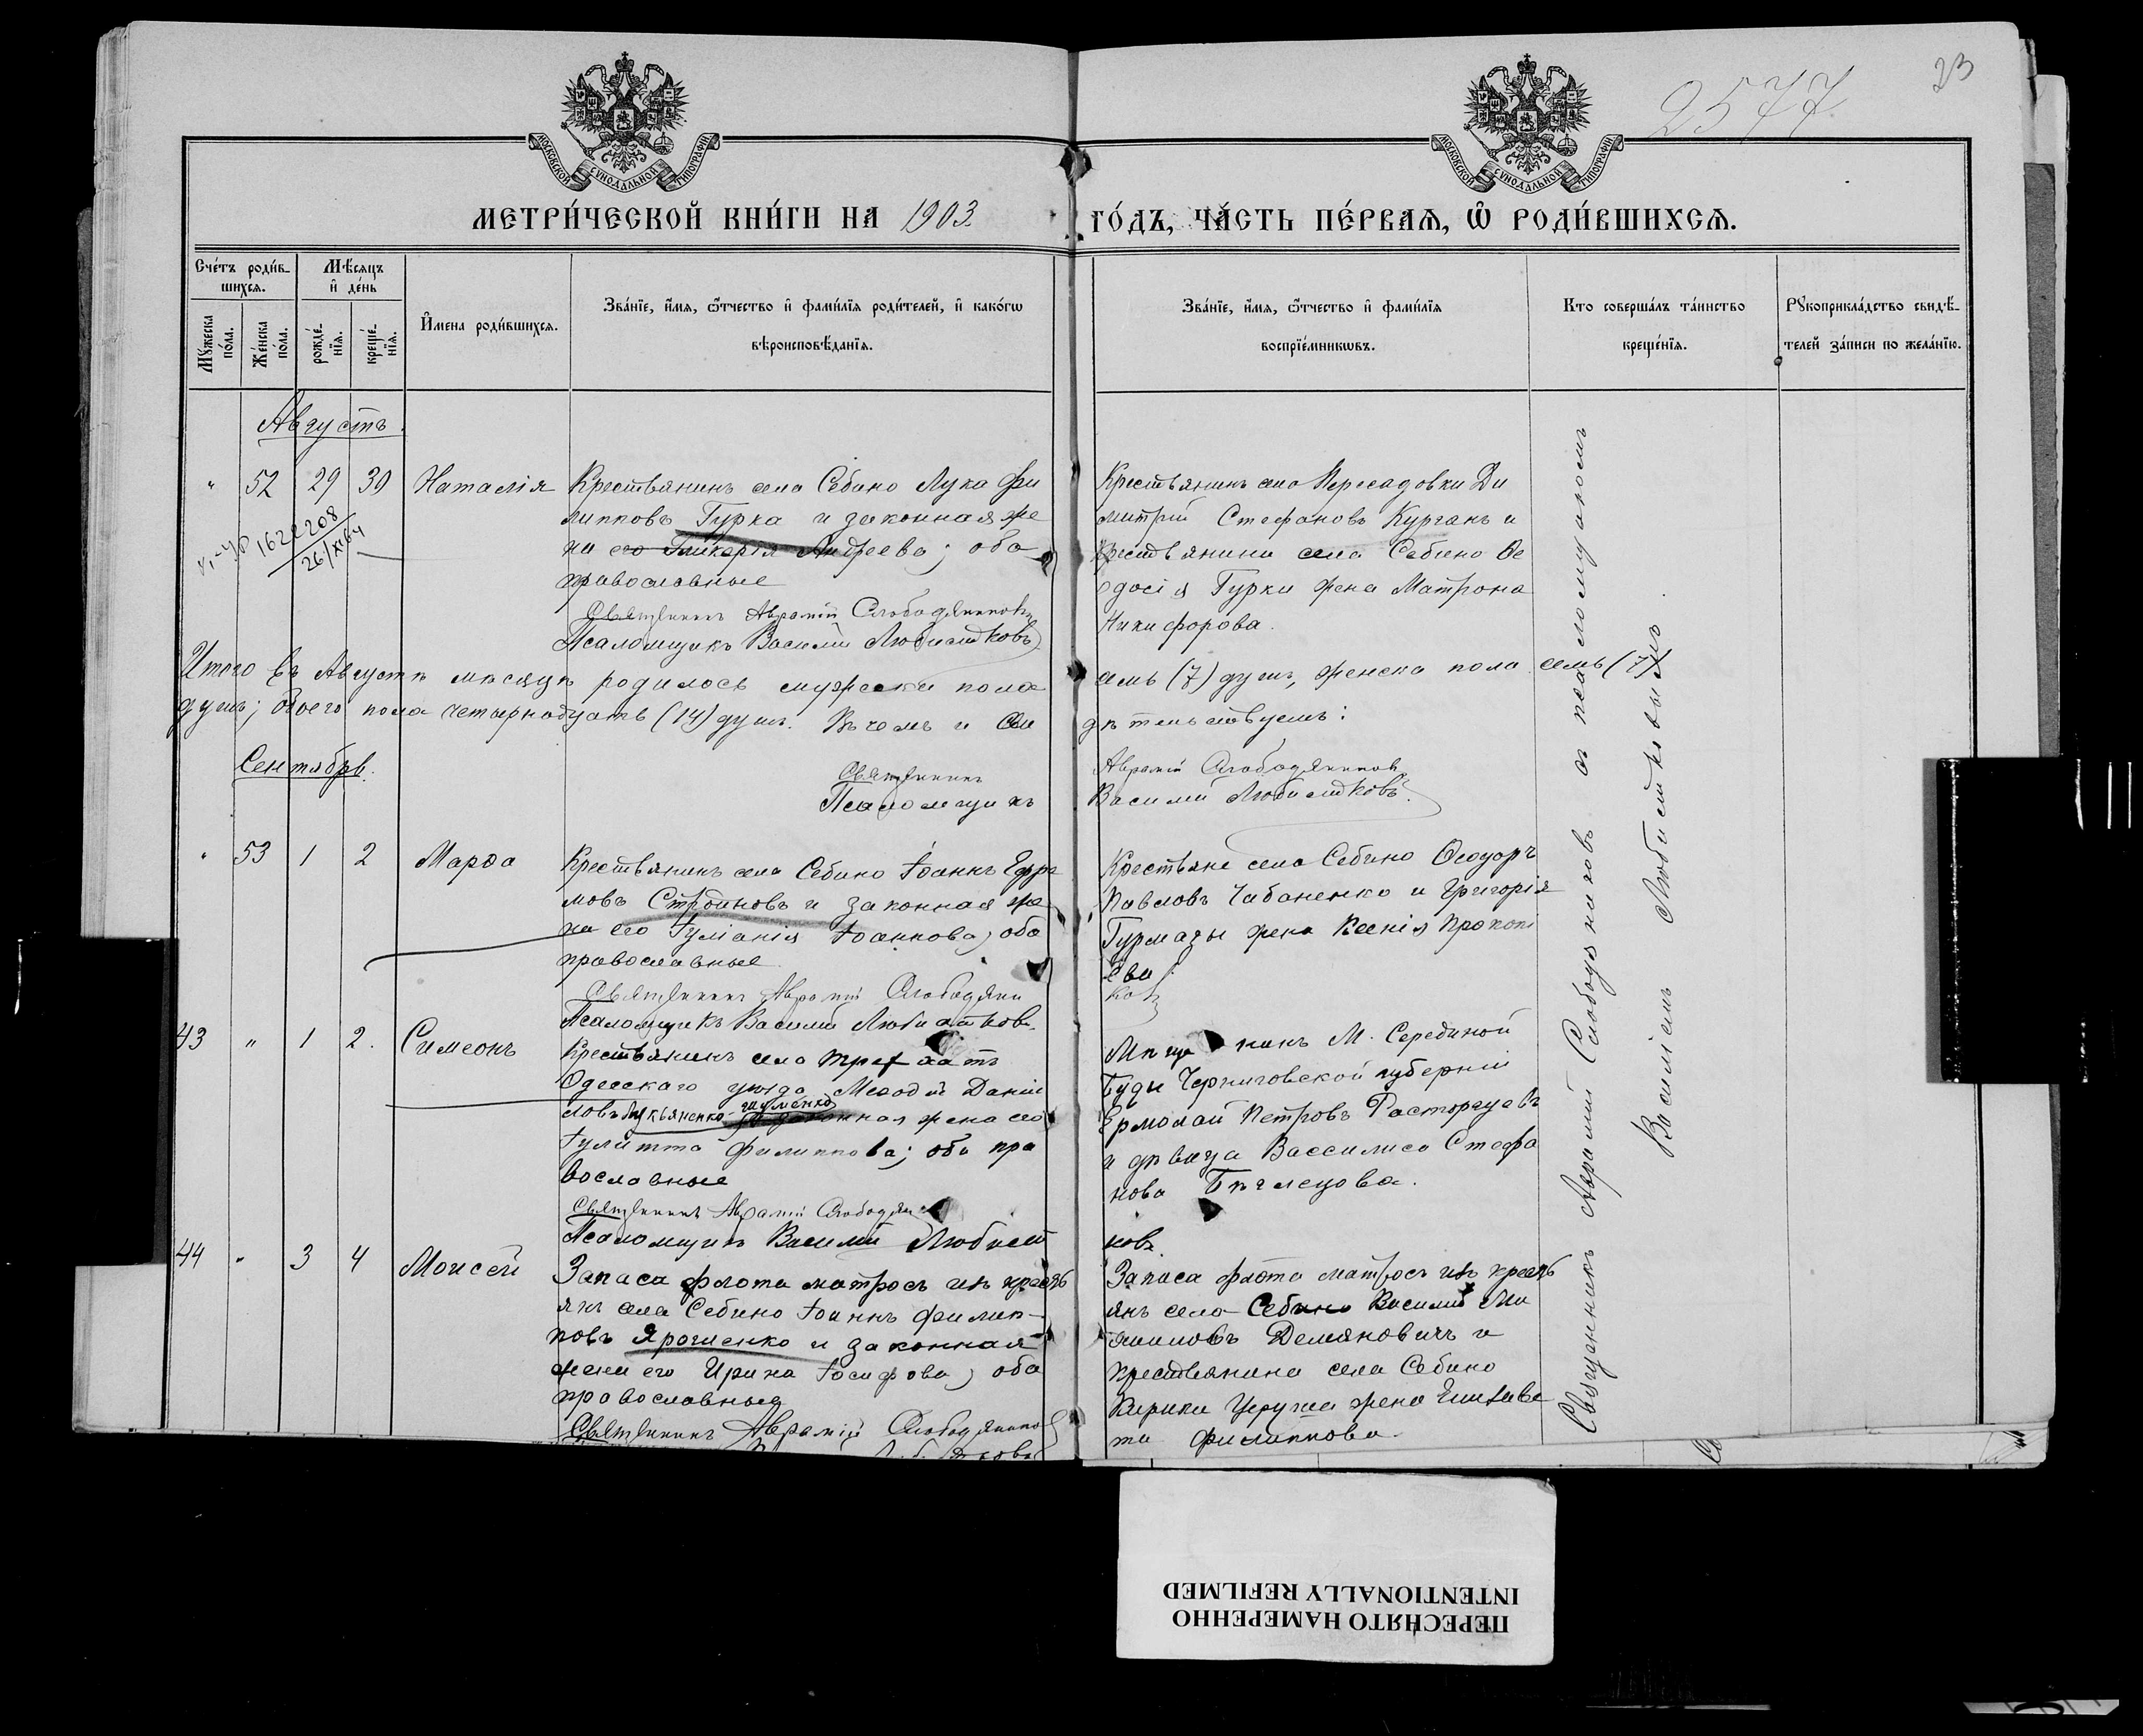 23
2577
МОСКОВСКОЙ СѴНОДАЛЬНОЙ ТИПОГРАФІИ
МОСКОВСКОЙ СѴНОДАЛЬНОЙ ТИПОГРАФІИ
МЕТРИ́ЧЕСКОЙ КНИ́ГИ НА 1903 ГО́ДЪ, ЧА́СТЬ ПЕ́РВАЯ, Ѿ РОДИ́ВШИХСЯ.
Сче́тъ роди́в-
шихся.
Мꙋ́жеска по́ла.
Же́нска по́ла.
Мѣ́сяцъ
и҆ де́нь
рожде́-
нїя.
креще́-
нїя.
И҆мена роди́вшихся.
Зва́нїе, и҆́мя, ѻ҆́тчество и҆ фами́лїя роди́телей, и҆ како́гѡ
вѣроисповѣ́данїя.
Зва́нїе, и҆́мя, ѻ҆́тчество и҆ фами́лїя
воспрїе́мникѡвъ.
Кто совершáлъ та́инство
креще́нїя.
Рꙋкоприкла́дство свидѣ́-
телей за́писи по жела́нїю.
Августъ.
" 52 29 30 Наталія
Крестьянинъ села Себино Лука Фи
липповъ Гурка и законная же
на его Гликерія Андреева; оба
православные
Священникъ Аврамій Слободяниковъ
Псаломщикъ Василий
Крестьянинъ села Пересадовки Ди
митрій Стефановъ Курганъ и
крестьянина села Себино Ѳе
одосія Гурки жена Матрона
Никифорова.
1622208
26/XI64
Итого въ Августѣ мѣсяцѣ родилось мужеска пола семь (7) душъ, женска пола семь (7)
душъ; обоего пола четырнадцать (14) душъ. Въ чемъ и сви дѣтельствуемъ:
Сентябрь.
Священникъ Аврамій Слободяниковъ
Псаломщикъ Василий
" 53 1 2 Марѳа
Крестьянинъ села Себино Іоаннъ Ефре
мовъ Стояновъ и законная же
на его Іуліанія Іоаннова; оба
православные
Священникъ Аврамій Слободяни ковъ
Псаломщикъ Василий
Крестьяне села Себино Ѳеодоръ
Павловъ Чабаненко и Григорія
Гурмазы жена Ксенія Прокопі
ева.
43 " 1 2. Симеонъ
Крестьянинъ села Трехатъ
Одесскаго уѣзда Меѳодій Даніи
ловъ законная жена его
Іулитта Филиппова; оба пра
вославные
Священникъ Аврамій Слободяни ковъ
Псаломщикъ Василий
Мѣщанинъ М. Серединой
Буды Черниговской губерніи
Ермолай Петровъ Расторгуевъ
и дѣвица Вассилиса Стефа
нова Бѣглецова.
44 " 3 4 Моисей
Запаса флота матросъ изъ кресть
янъ села Себино Іоаннъ Филип-
повъ Ярошенко и законная
жена его Ирина Іосифова; оба
православные
Священникъ Аврамій Слободяниковъ
Запаса флота матросъ изъ кресть
янъ села Себино Василий Ми
хаиловъ Демяновичъ и
крестьянина села Себино
Кирика жена Елисаве
та Филиппова.
Священникъ Аврамий Слободяниковъ съ псаломщикомъ
Василіемъ
ПЕРЕСНЯТО НАМЕРЕННО
INTENTIONALLY REFILMED